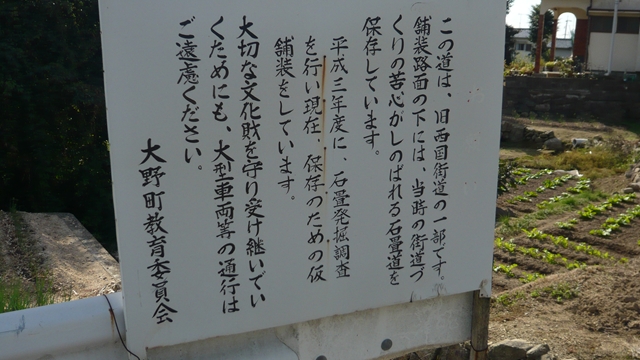 この道は、旧西国街道の一部です。
舗装路面の下には、当時の街道づ
くりの苦心がしのばれる石畳道を
保存しています。
平成三年度に、石畳発掘調査
を行い現在、保存のための仮
舗装をしています。
大切な文化財を守り受け継いでい
くためにも、大型車両等の通行は
ご遠慮ください。
大野町教育委員会